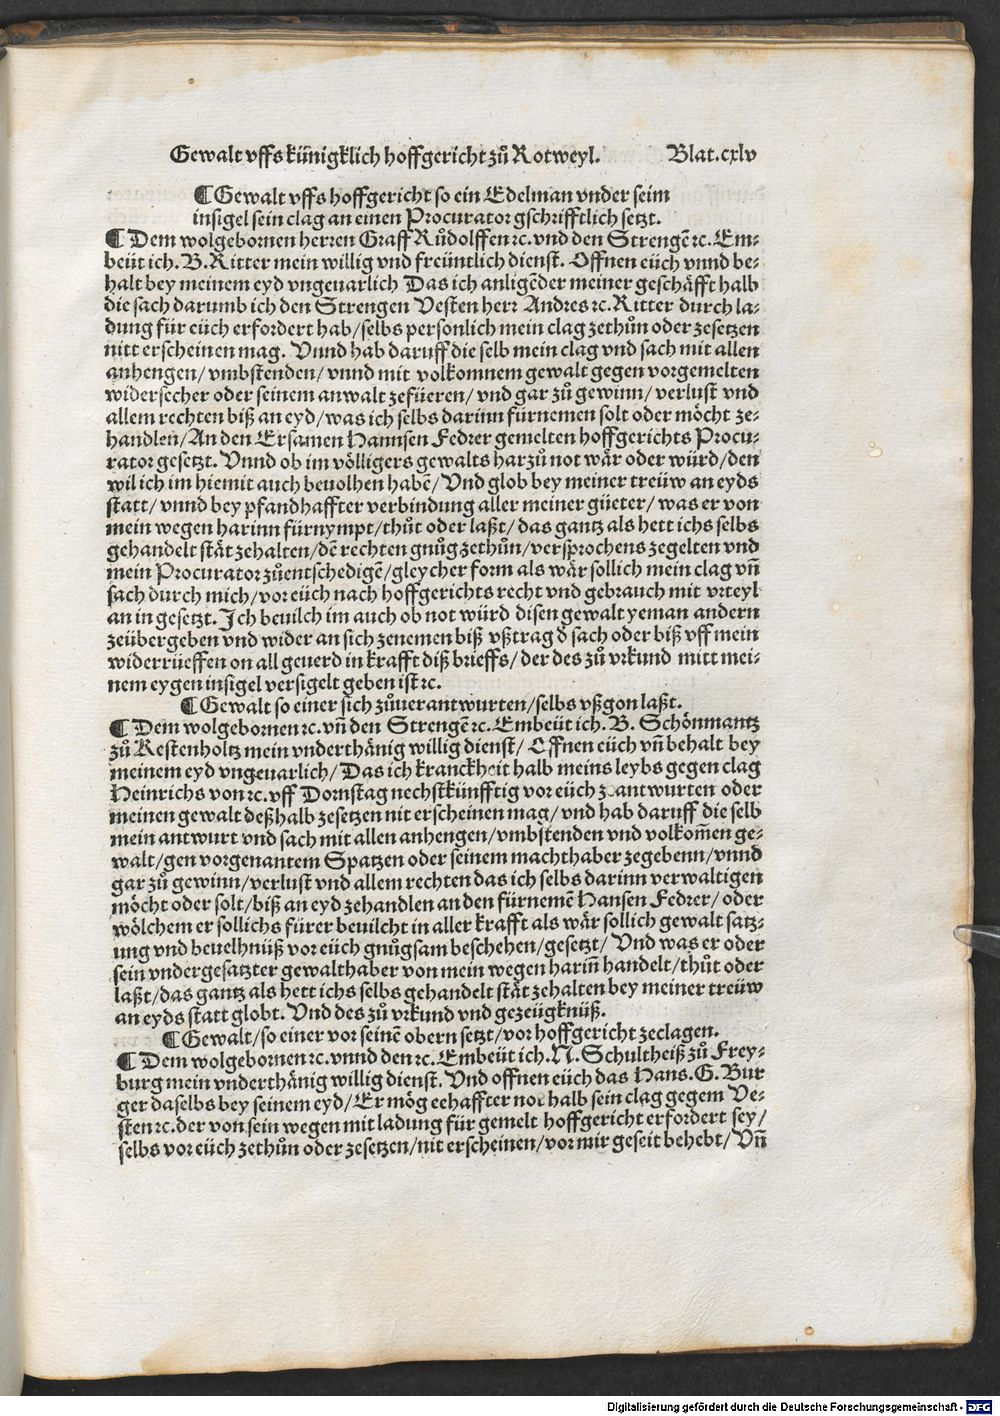 Gewalt vffs künigklich hoffgericht zů Rotweyl. Blat.cxlv
¶ Gewalt vffs hoffgericht so ein Edelman vnder seim
insigel sein clag an einen Procurator gschrifftlich setzt.
¶ Dem wolgebornen herren Graff Růdolffen ꝛc. vnd den Strengē ꝛc. Em⸗
beüt ich. B. Ritter mein willig vnd freüntlich dienst. Offnen eüch vnnd be⸗
halt bey meinem eyd vngeuarlich Das ich anligēder meiner geschäfft halb
die sach darumb ich den Strengen Vesten herr Andres ꝛc. Ritter durch la⸗
dung für eüch erfordert hab/selbs personlich mein clag zethůn oder zesetzen
nitt erscheinen mag. Vnnd hab daruff die selb mein clag vnd sach mit allen
anhengen/vmbstenden/vnnd mit volkomnem gewalt gegen vorgemelten
widersecher oder seinem anwalt zefüeren/vnd gar zů gewinn/verlust vnd
allem rechten biß an eyd/was ich selbs darinn fürnemen solt oder möcht ze⸗
handlen/An den Ersamen Hannsen Fedrer gemelten hoffgerichts Procu⸗
rator gesetzt. Vnnd ob im völligers gewalts harzů not wär oder würd/den
wil ich im hiemit auch beuolhen habē/Vnd glob bey meiner treüw an eyds
statt/vnnd bey pfandhaffter verbindung aller meiner güeter/was er von
mein wegen harinn fürnympt/thůt oder laßt/das gantz als hett ichs selbs
gehandelt stät zehalten/dē rechten gnůg zethůn/versprochens zegelten vnd
mein Procurator zůentschedigē/gleycher form als wär sollich mein clag vn̄
sach durch mich/vor eüch nach hoffgerichts recht vnd gebrauch mit vrteyl
an in gesetzt. Ich beuilch im auch ob not würd disen gewalt yeman andern
zeübergeben vnd wider an sich zenemen biß vßtrag d̕ sach oder biß vff mein
widerrüeffen on all geuerd in krafft diß brieffs/der des zů vrkund mitt mei⸗
nem eygen insigel versigelt geben ist ꝛc.
¶ Gewalt so einer sich zůuerantwurten/selbs vßgon laßt.
¶ Dem wolgebornen ꝛc. vn̄ den Strengē ꝛc. Embeüt ich. B. Schönmantz
zů Kestenholtz mein vnderthänig willig dienst/Offnen eüch vn̄ behalt bey
meinem eyd vngeuarlich/Das ich kranckheit halb meins leybs gegen clag
Heinrichs von ꝛc. vff Dornstag nechstkünfftig vor eüch antwurten oder
meinen gewalt deßhalb zesetzen nit erscheinen mag/vnd hab daruff die selb
mein antwurt vnd sach mit allen anhengen/vmbstenden vnd volkom̄en ge⸗
walt/gen vorgenantem Spatzen oder seinem machthaber zegebenn/vnnd
gar zů gewinn/verlust vnd allem rechten das ich selbs darinn verwaltigen
möcht oder solt/biß an eyd zehandlen an den fürnemē Hansen Fedrer/oder
wölchem er sollichs fürer beuilcht in aller krafft als wär sollich gewalt satz⸗
ung vnd beuelhnüß vor eüch gnůgsam beschehen/gesetzt/Vnd was er oder
sein vndergesatzter gewalthaber von mein wegen harin̄ handelt/thůt oder
laßt/das gantz als hett ichs selbs gehandelt stät zehalten bey meiner treüw
an eyds statt globt. Vnd des zů vrkund vnd gezeügknüß.
¶ Gewalt/so einer vor seinē obern setzt/vor hoffgericht zeclagen.
¶ Dem wolgebornen ꝛc. vnnd den ꝛc. Embeüt ich. N. Schultheiß zů Frey⸗
burg mein vnderthänig willig dienst. Vnd offnen eüch das Hans. G. Bur
ger daselbs bey seinem eyd/Er mög eehaffter halb sein clag gegem Ve⸗
sten ꝛc. der von sein wegen mit ladung für gemelt hoffgericht erfordert sey/
selbs vor eüch zethůn oder zesetzen/nit erscheinen/vor mir geseit behebt/Vn̄
Digitalisierung gefördert durch die Deutsche Forschungsgemeinschaft - DFG